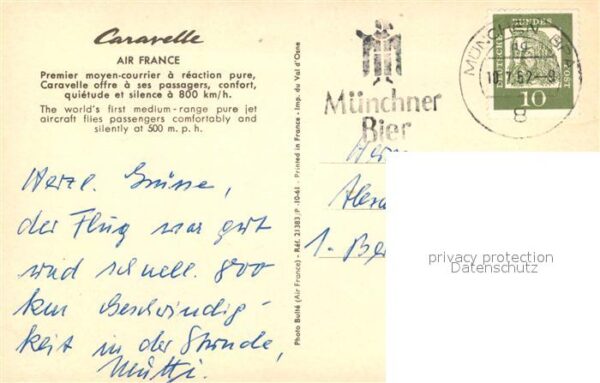 Caravelle
AIR FRANCE
Premier moyen-courrier à réaction pure,
Caravelle offre à ses passagers, confort,
quiétude et silence à 800 km/h.
The world's first medium-range pure jet
aircraft flies passengers comfortably and
silently at 500 m. p. h.
Herzl. Grüsse,
der Flug war gut
und schnell. 800
km Geschwindig-
keit in der Stunde,
Mutti.
Photo Bulté (Air France) - Réf. 21383/P -10-61 - Printed in France - Imp. du Val d'Osne
Münchner
Bier
MÜNCHEN BP
8
DEUTSCHE
BUNDES
POST
10
Herrn
1. Be
privacy protection
Datenschutz